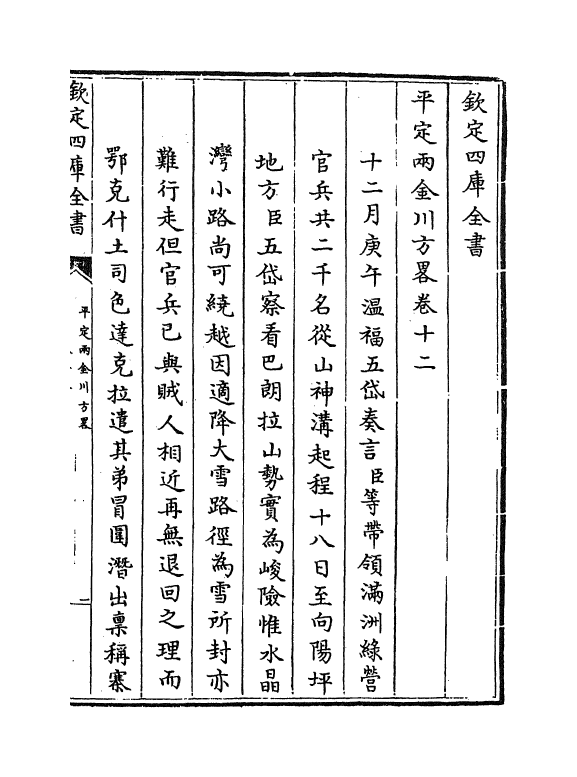 欽定四庫全書
平定兩金川方畧卷十二
十二月庚午温福五岱奏言臣等帶領滿洲綠營
官兵共二千名從山神溝起程十八日至向陽坪
地方臣五岱察看巴朗拉山勢實為峻險惟水晶
灣小路尚可繞越因適降大雪路徑為雪所封亦
難行走但官兵已與賊人相近再無退回之理而
鄂克什土司色達克拉遣其弟冒圍潛出禀稱寨
欽定四庫全書
平定兩金川方畧